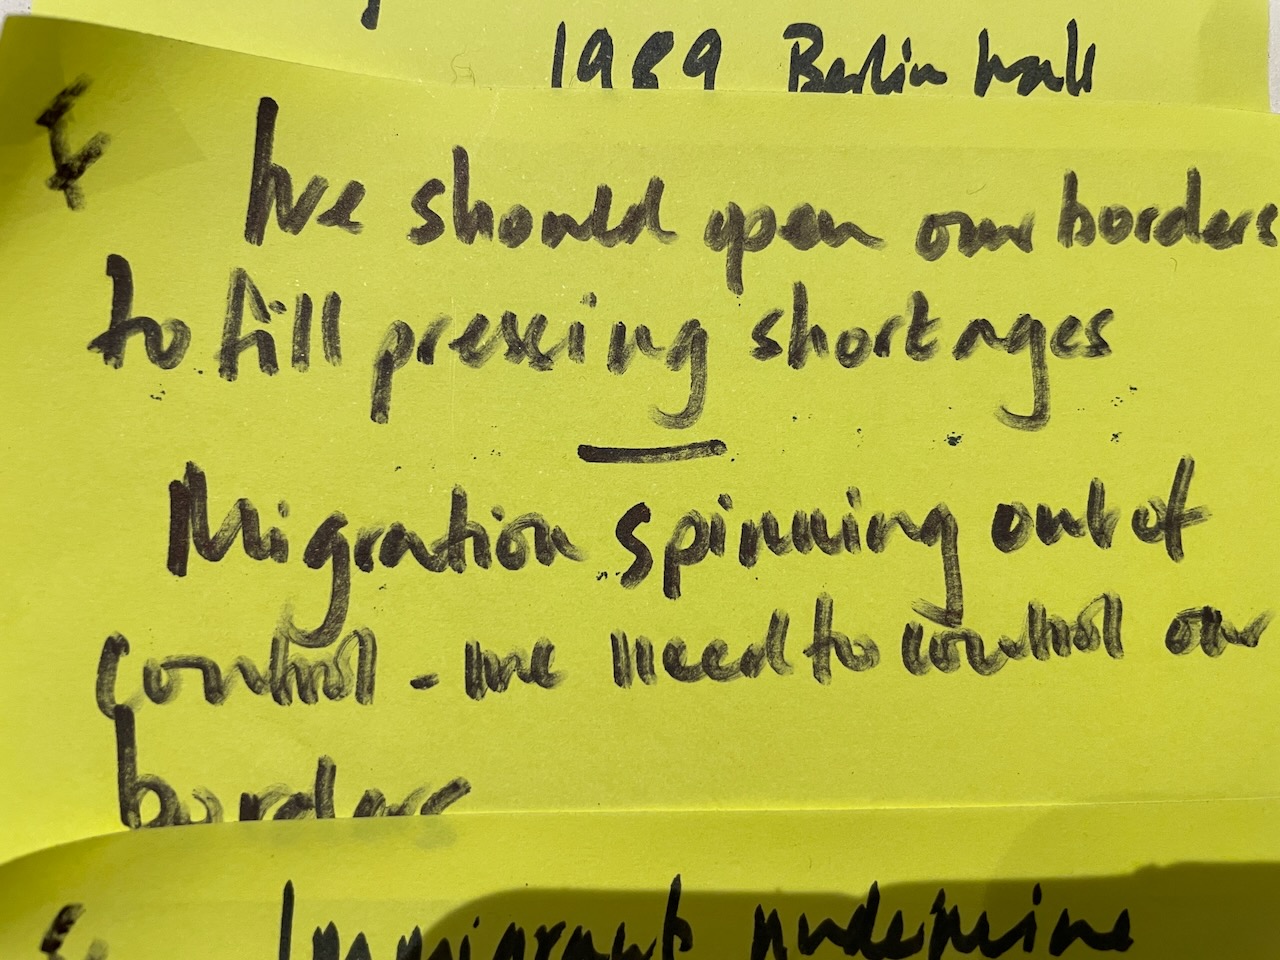 1989 Berlin wall
We should open our borders
to fill pressing shortages
Migration spinning out of
control - we need to control our
borders
Immigrants undermine